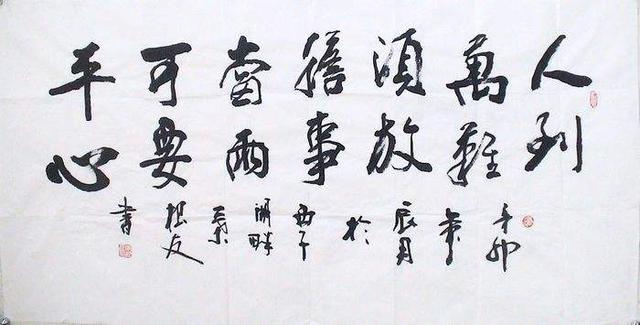 人到
萬難
須放
膽事
當兩
可要
平心
辛卯
年
辰月
於
西子
湖畔
根友
書